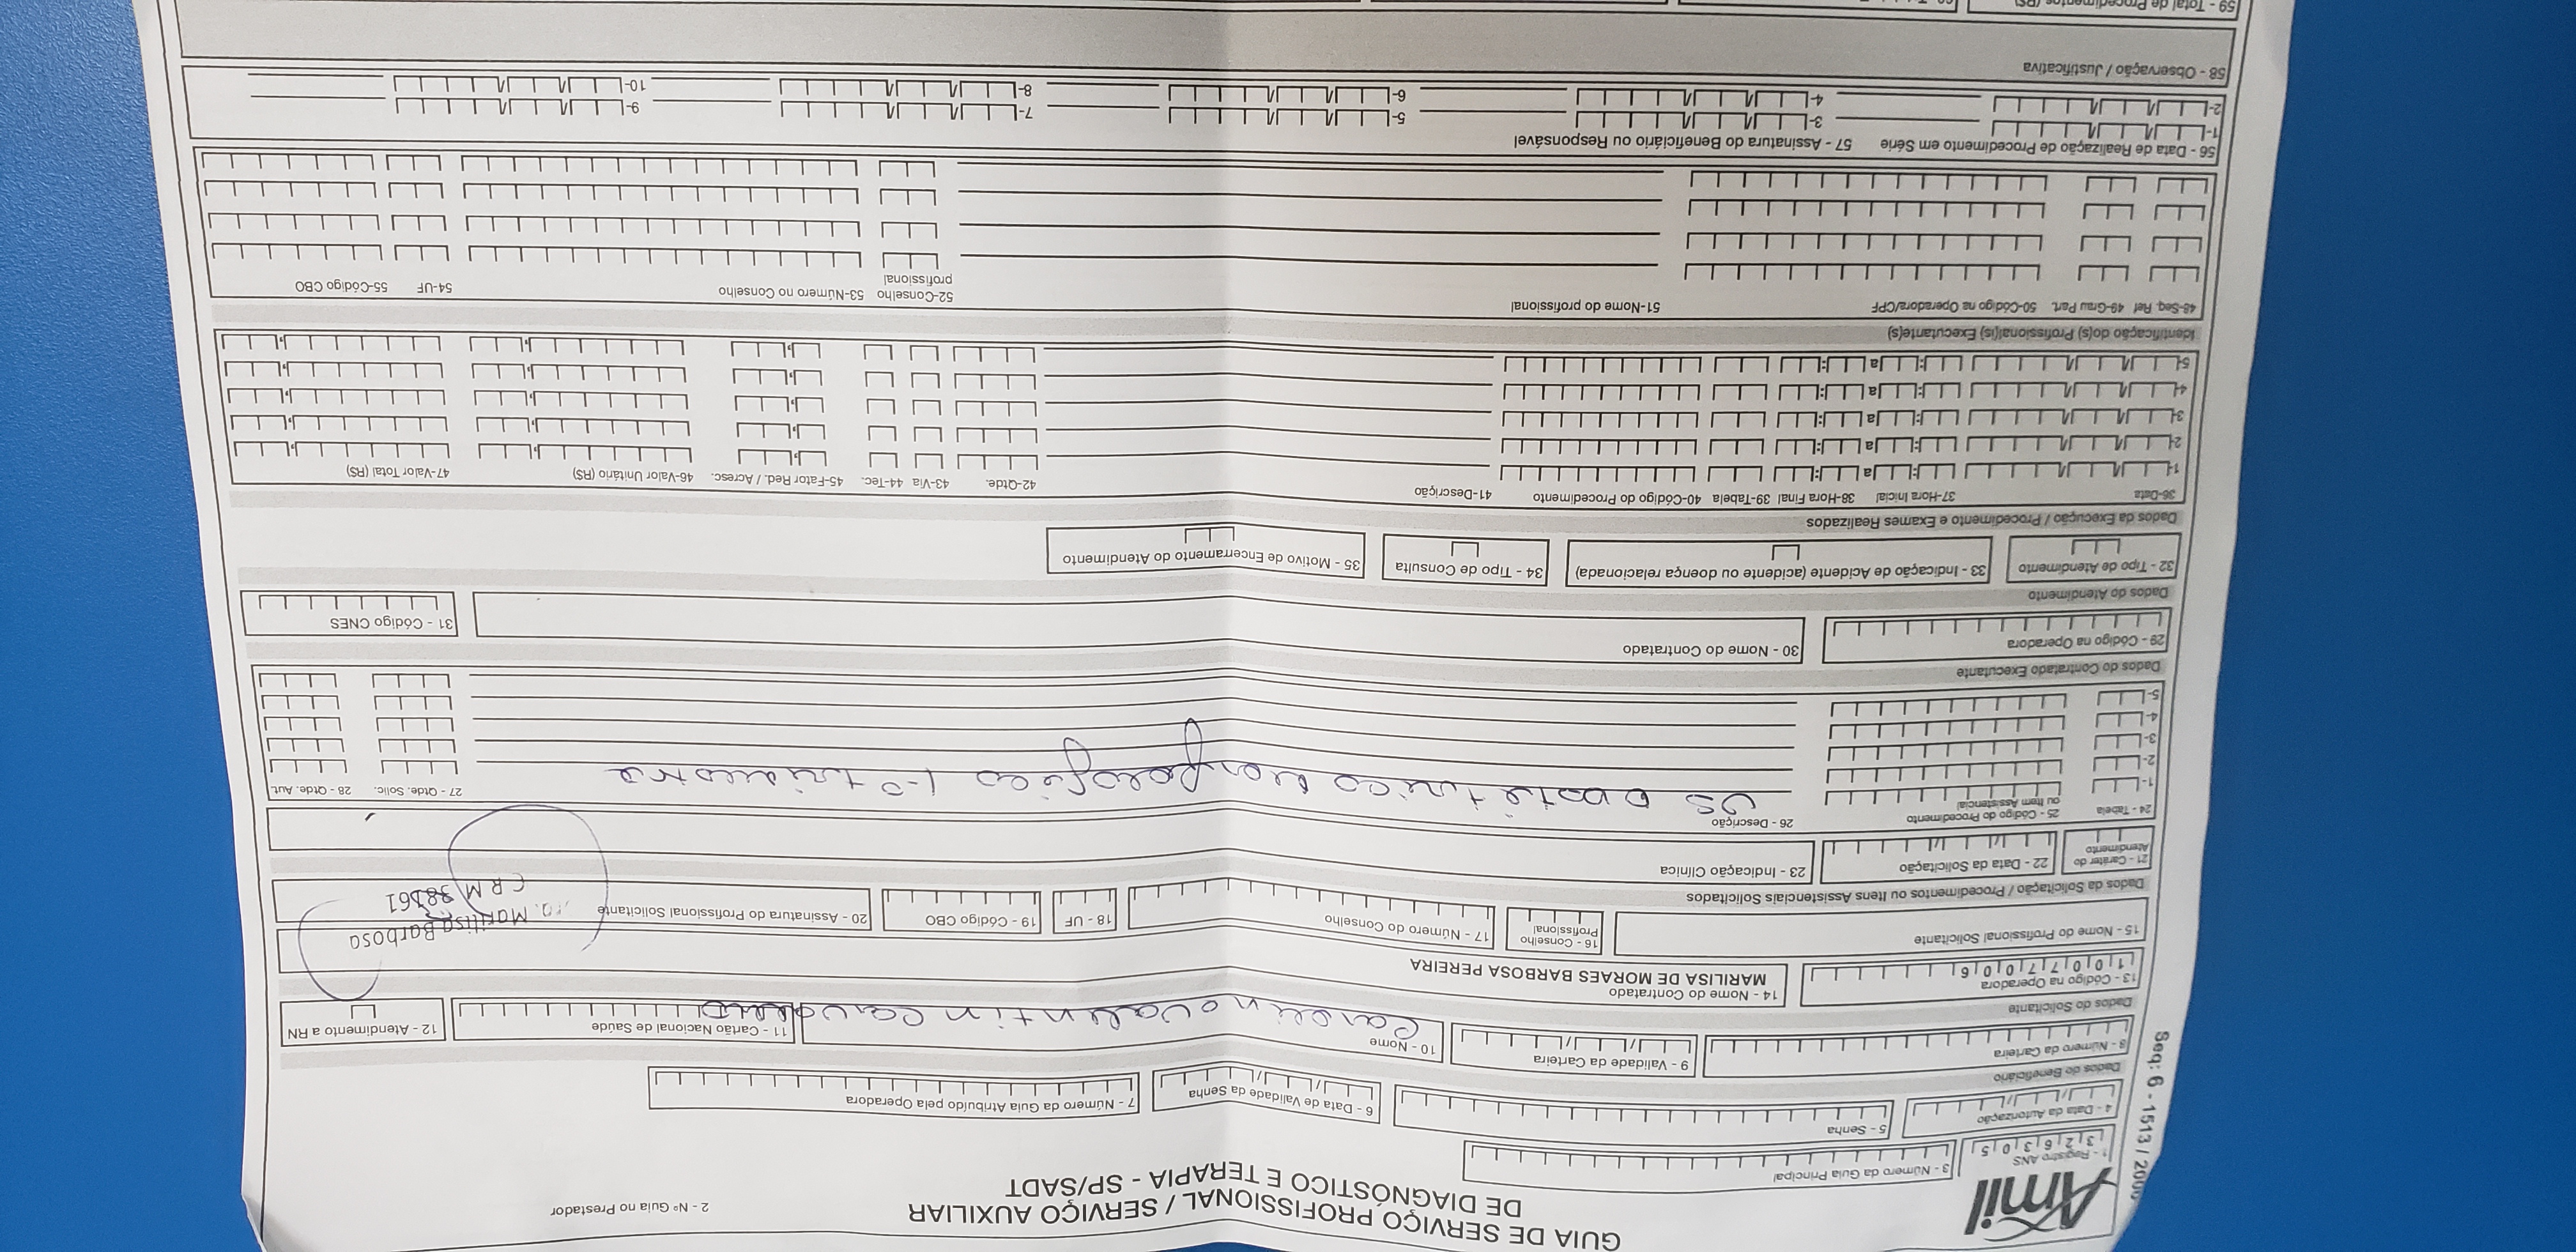 Amil
GUIA DE SERVIÇO PROFISSIONAL / SERVIÇO AUXILIAR
DE DIAGNÓSTICO E TERAPIA - SP/SADT
2 - Nº Guia no Prestador
1 - Registro ANS
326305
3 - Número da Guia Principal
4 - Data da Autorização
5 - Senha
6 - Data de Validade da Senha
7 - Número da Guia Atribuído pela Operadora
Dados do Beneficiário
8 - Número da Carteira
9 - Validade da Carteira
10 - Nome
11 - Cartão Nacional de Saúde
12 - Atendimento a RN
Valentin
Dados do Solicitante
13 - Código na Operadora
10077006
14 - Nome do Contratado
MARILISA DE MORAES BARBOSA PEREIRA
15 - Nome do Profissional Solicitante
16 - Conselho Profissional
17 - Número do Conselho
18 - UF
19 - Código CBO
20 - Assinatura do Profissional Solicitante
Marilisa Barbosa
CRM
Dados da Solicitação / Procedimentos ou Itens Assistenciais Solicitados
21 - Caráter do Atendimento
22 - Data da Solicitação
23 - Indicação Clínica
24 - Tabela
25 - Código do Procedimento ou Item Assistencial
26 - Descrição
27 - Qtde. Solic.
28 - Qtde. Aut.
1-
US obstétrico morfológico 1º trimestre
2-
3-
4-
5-
Dados do Contratado Executante
29 - Código na Operadora
30 - Nome do Contratado
31 - Código CNES
Dados do Atendimento
32 - Tipo de Atendimento
33 - Indicação de Acidente (acidente ou doença relacionada)
34 - Tipo de Consulta
35 - Motivo de Encerramento do Atendimento
Dados da Execução / Procedimento e Exames Realizados
36-Data
37-Hora Inicial
38-Hora Final
39-Tabela
40-Código do Procedimento
41-Descrição
42-Qtde.
43-Via
44-Tec.
45-Fator Red. / Acresc.
46-Valor Unitário (R$)
47-Valor Total (R$)
1- a
2- a
3- a
4- a
5- a
Identificação do(s) Profissional(is) Executante(s)
48-Seq. Ref
49-Grau Part.
50-Código na Operadora/CPF
51-Nome do profissional
52-Conselho profissional
53-Número no Conselho
54-UF
55-Código CBO
56 - Data de Realização de Procedimento em Série
57 - Assinatura do Beneficiário ou Responsável
1- 3- 5- 7- 9-
2- 4- 6- 8- 10-
58 - Observação / Justificativa
59 - Total de Procedimentos (R$)